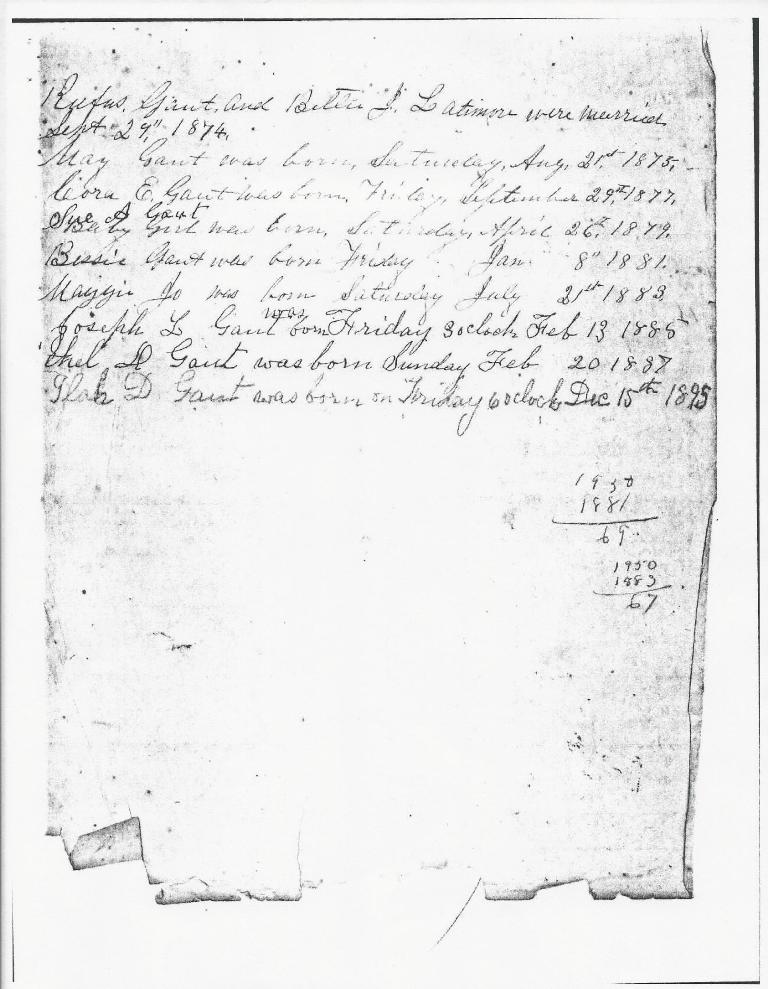 Rufus Gant and Bettie J. Latimore were married
Sept 29" 1874.
May Gant was born, Saturday, Aug, 21st 1875,
Cora E. Gant was born, Friday, September 29th 1877,
Sue A Gant
Baby Girl was born, Saturday, April 26th 1879,
Bessie Gant was born Friday Jan 8" 1881.
was born Saturday July 21st 1883
Joseph L Gant was born Friday 3 oclock Feb 13 1885
thel Gant was born Sunday Feb 20 1887
D Gant was born on Friday 6 oclock Dec 15th 1895
1950
1881
69
1950
1883
67